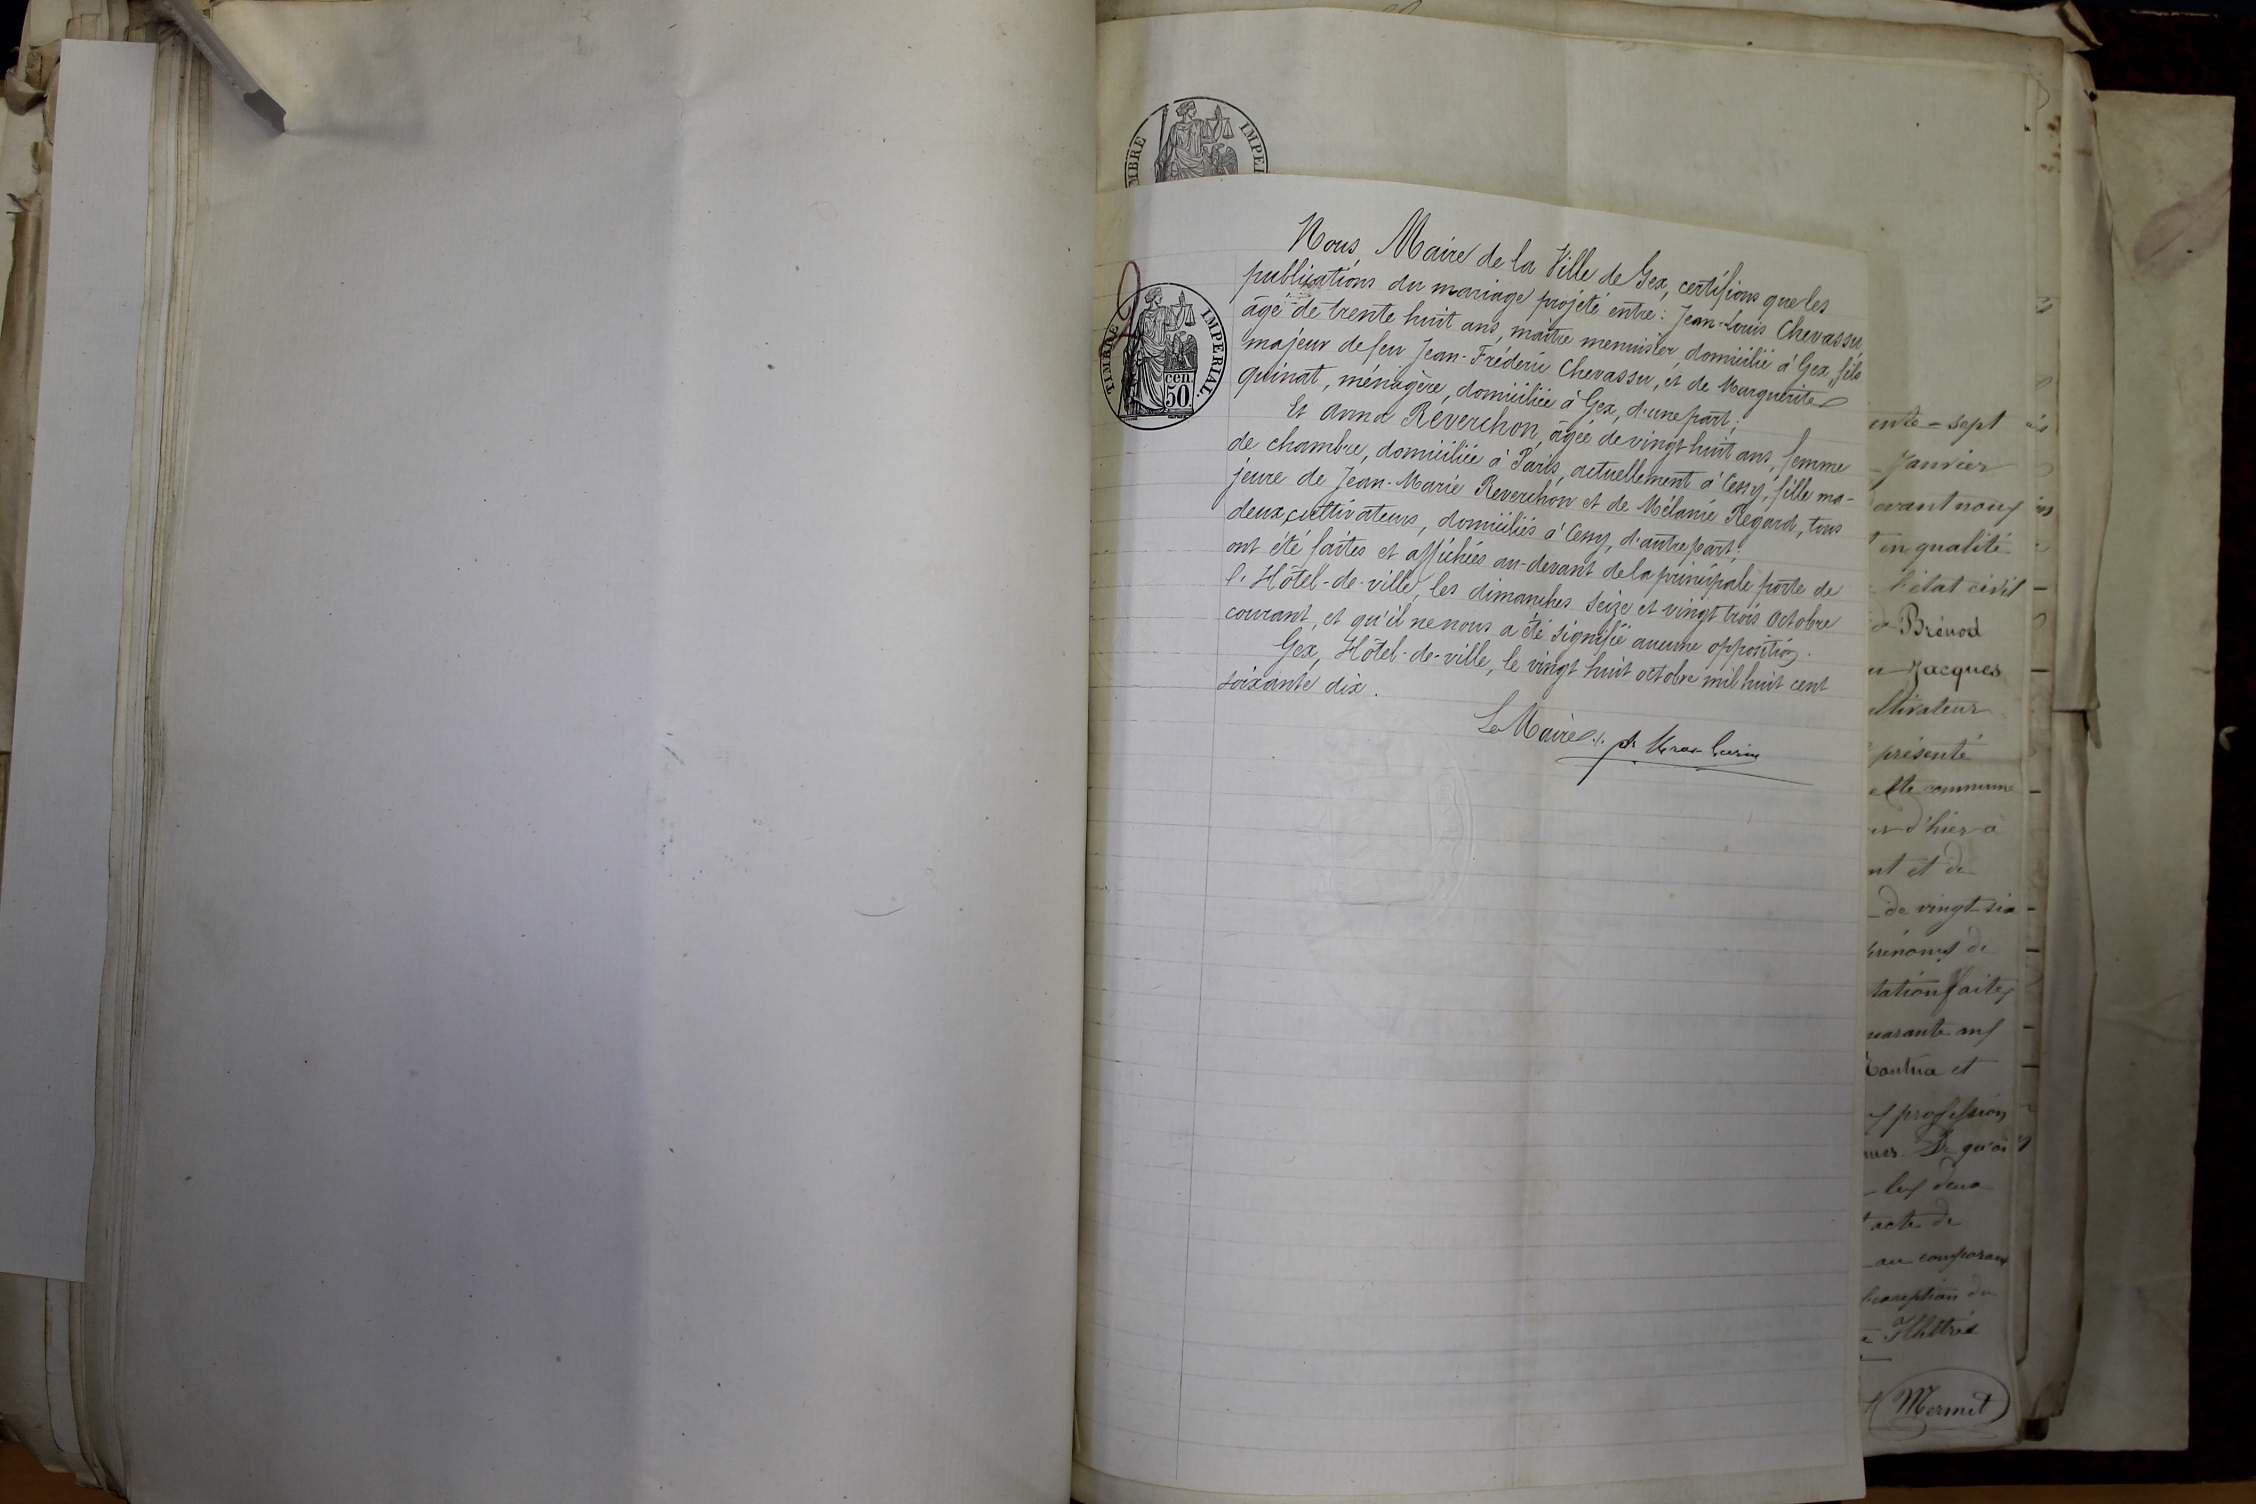 TIMBRE IMPE
TIMBRE IMPERIAL.
cen.
50.
Nous, Maire de la Ville de Gex, certifions que les
publications du mariage projeté entre : Jean-Louis Chevassu
âgé de trente huit ans, maître menuisier, domicilié à Gex, fils
majeur de feu Jean-Frédéric Chevassu, et de Marguerite
quinat, ménagère, domiciliée à Gex, d'une part ;
Et Anna Reverchon, âgée de vingt huit ans, femme
de chambre, domiciliée à Paris, actuellement à Cessy, fille ma-
jeure de Jean-Marie Reverchon et de Mélanie Regard, tous
deux cultivateurs, domiciliés à Cessy, d'autre part ;
ont été faites et affichées au-devant de la principale porte de
l'Hôtel-de-ville, les dimanches seize et vingt trois octobre
courant, et qu'il ne nous a été signifié aucune opposition.
Gex, Hôtel-de-ville, le vingt huit octobre mil huit cent
soixante dix.
Le Maire
ente-sept
Janvier
evant nous
en qualité
l'état civil
Brénod
Jacques
ltivateur
présenté
ette commune
d'hier à
nt et de
de vingt six
prénoms de
tation faites
uarante ans
Nantua et
profession
De quoi
les deux
acte de
au comparant
l'exception du
Illettré
Mermet